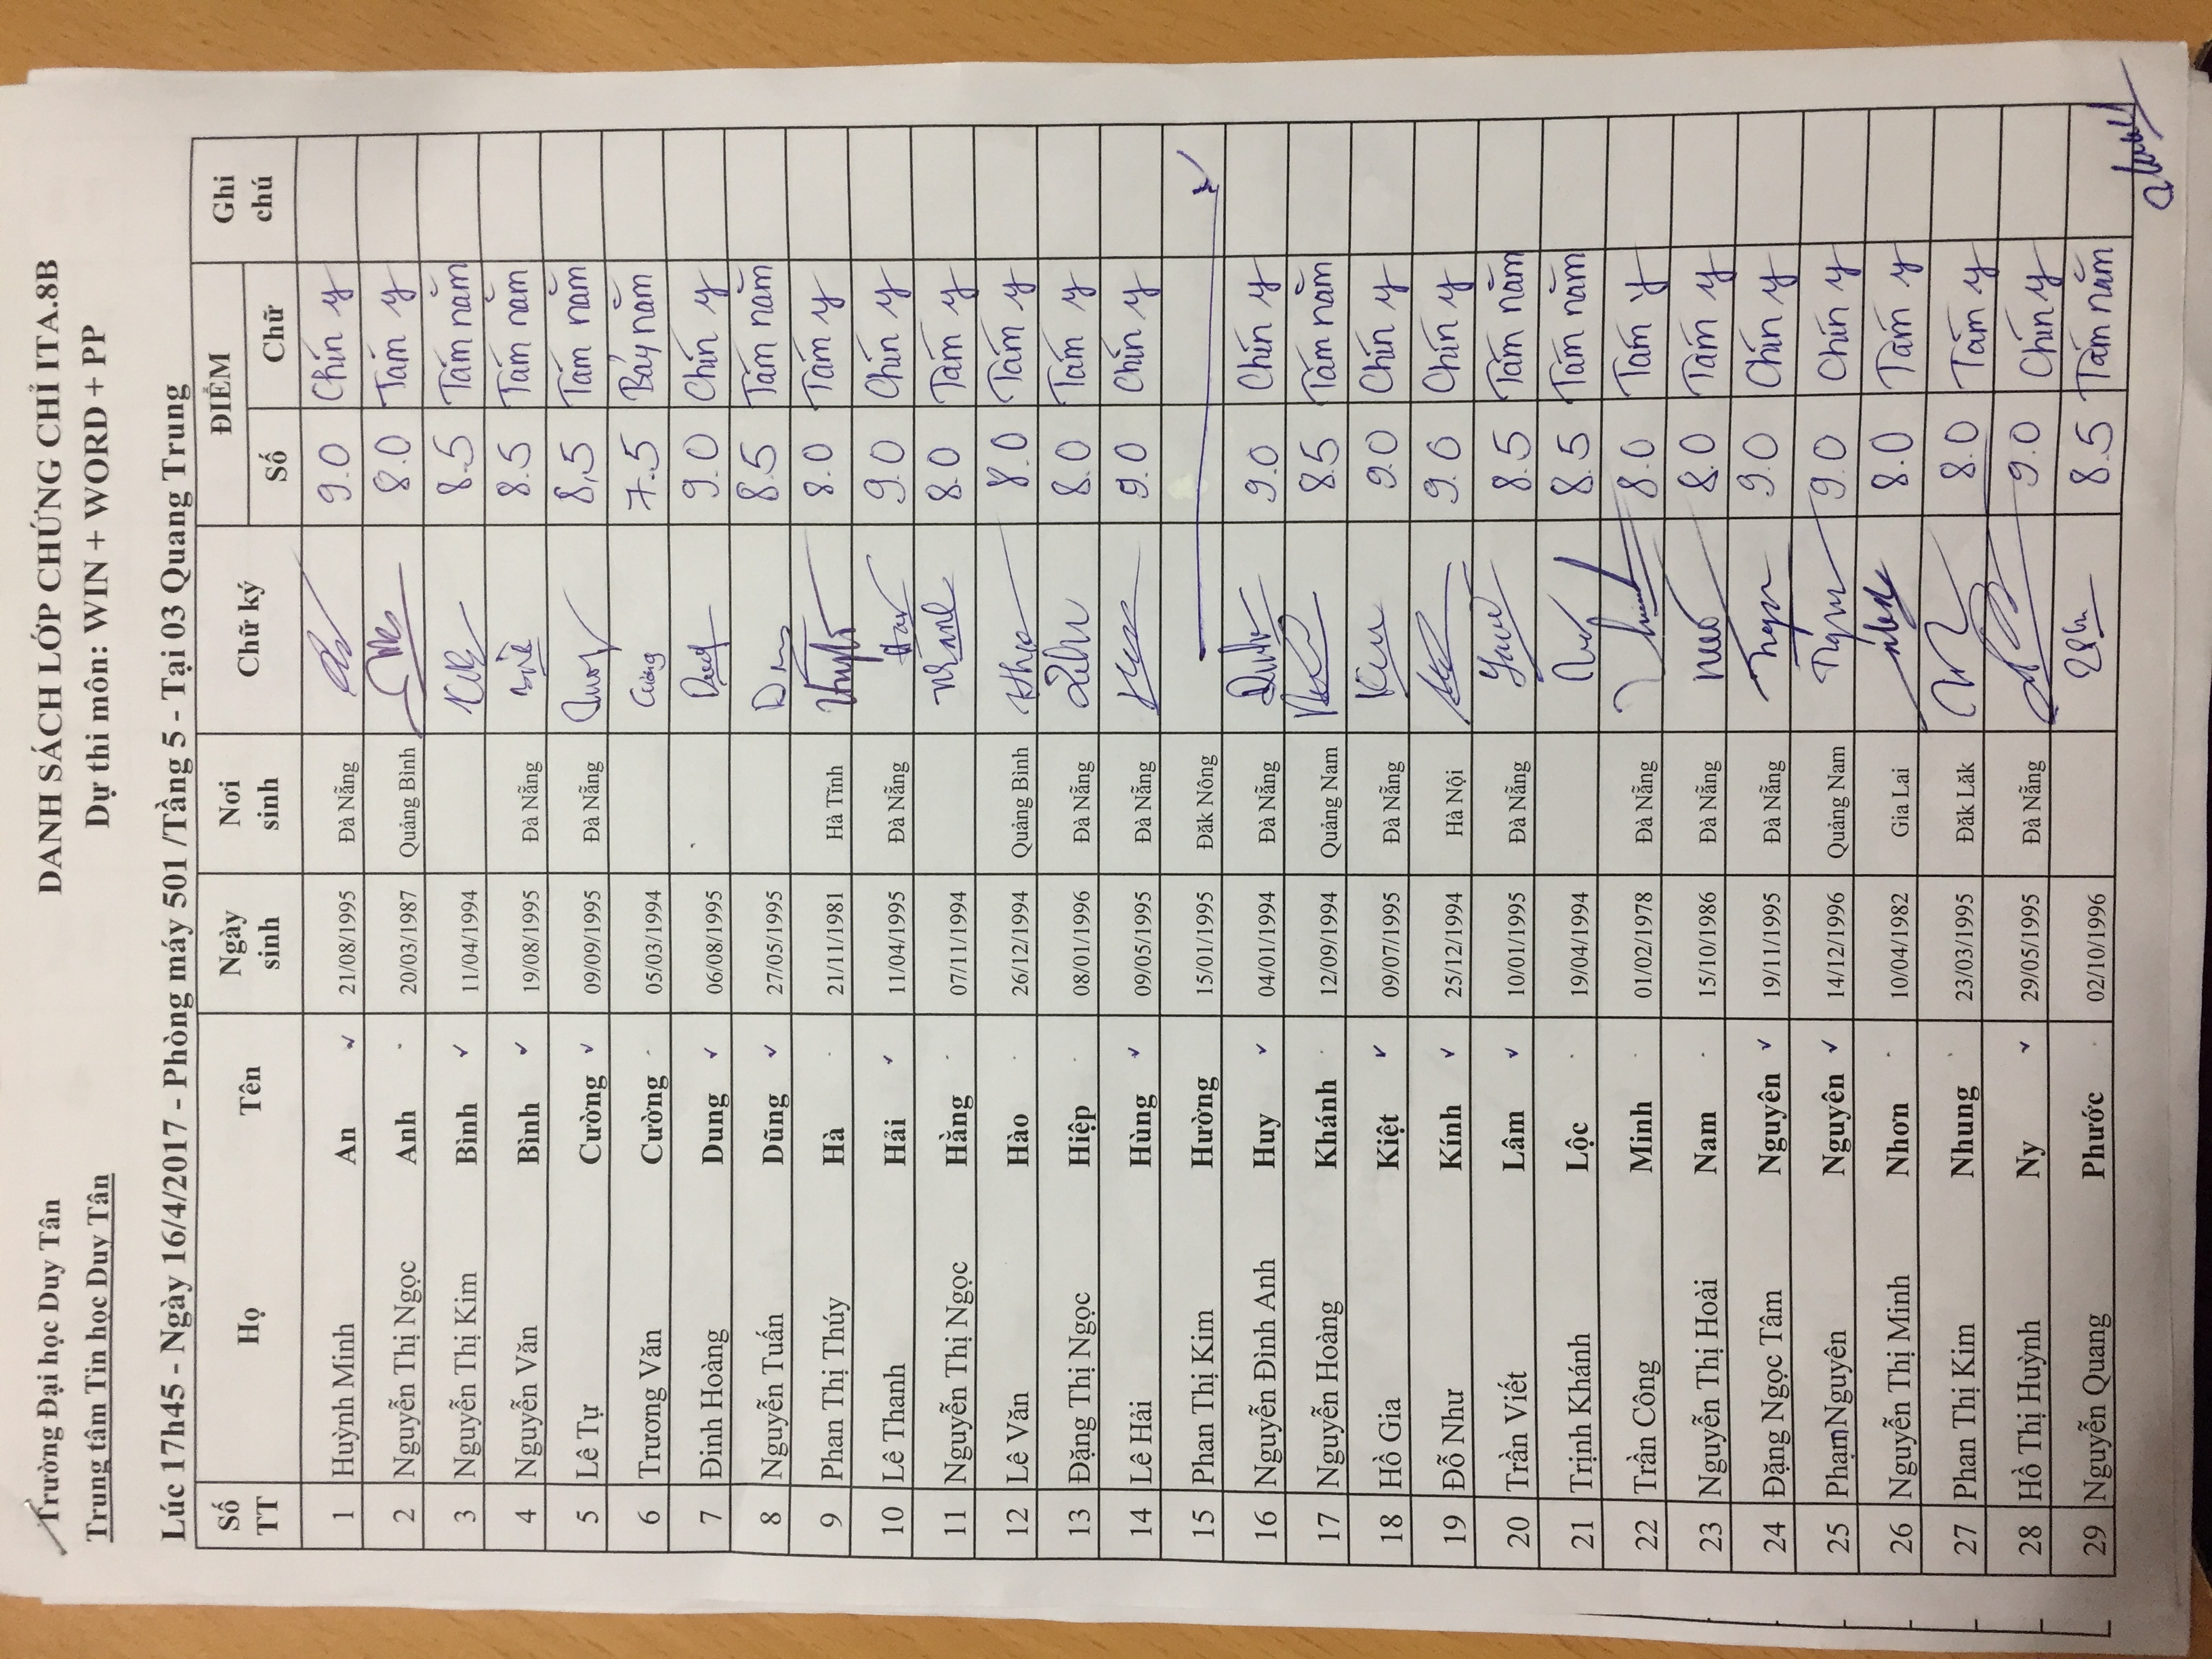 Trường Đại học Duy Tân
Trung tâm Tin học Duy Tân
DANH SÁCH LỚP CHỨNG CHỈ ITA.8B
Dự thi môn: WIN + WORD + PP
Lúc 17h45 - Ngày 16/4/2017 - Phòng máy 501 /Tầng 5 - Tại 03 Quang Trung
Số TT Họ Tên Ngày sinh Nơi sinh Chữ ký ĐIỂM Ghi chú
Số Chữ
1 Huỳnh Minh An 21/08/1995 Đà Nẵng 9.0 Chín y
2 Nguyễn Thị Ngọc Anh 20/03/1987 Quảng Bình 8.0 Tám y
3 Nguyễn Thị Kim Bình 11/04/1994 8.5 Tám năm
4 Nguyễn Văn Bình 19/08/1995 Đà Nẵng 8.5 Tám năm
5 Lê Tự Cường 09/09/1995 Đà Nẵng 8,5 Tám năm
6 Trương Văn Cường 05/03/1994 Cường 7.5 Bảy năm
7 Đinh Hoàng Dung 06/08/1995 9.0 Chín y
8 Nguyễn Tuấn Dũng 27/05/1995 8.5 Tám năm
9 Phan Thị Thúy Hà 21/11/1981 Hà Tĩnh 8.0 Tám y
10 Lê Thanh Hải 11/04/1995 Đà Nẵng 9.0 Chín y
11 Nguyễn Thị Ngọc Hằng 07/11/1994 8.0 Tám y
12 Lê Văn Hào 26/12/1994 Quảng Bình 8.0 Tám y
13 Đặng Thị Ngọc Hiệp 08/01/1996 Đà Nẵng 8.0 Tám y
14 Lê Hải Hùng 09/05/1995 Đà Nẵng 9.0 Chín y
15 Phan Thị Kim Hường 15/01/1995 Đăk Nông
16 Nguyễn Đình Anh Huy 04/01/1994 Đà Nẵng 9.0 Chín y
17 Nguyễn Hoàng Khánh 12/09/1994 Quảng Nam 8.5 Tám năm
18 Hồ Gia Kiệt 09/07/1995 Đà Nẵng 9.0 Chín y
19 Đỗ Như Kính 25/12/1994 Hà Nội 9.0 Chín y
20 Trần Viết Lâm 10/01/1995 Đà Nẵng 8.5 Tám năm
21 Trịnh Khánh Lộc 19/04/1994 8.5 Tám năm
22 Trần Công Minh 01/02/1978 Đà Nẵng 8.0 Tám y
23 Nguyễn Thị Hoài Nam 15/10/1986 Đà Nẵng 8.0 Tám y
24 Đặng Ngọc Tâm Nguyên 19/11/1995 Đà Nẵng 9.0 Chín y
25 Phạm Nguyên Nguyên 14/12/1996 Quảng Nam 9.0 Chín y
26 Nguyễn Thị Minh Nhơn 10/04/1982 Gia Lai 8.0 Tám y
27 Phan Thị Kim Nhung 23/03/1995 Đăk Lăk 8.0 Tám y
28 Hồ Thị Huỳnh Ny 29/05/1995 Đà Nẵng 9.0 Chín y
29 Nguyễn Quang Phước 02/10/1996 8.5 Tám năm